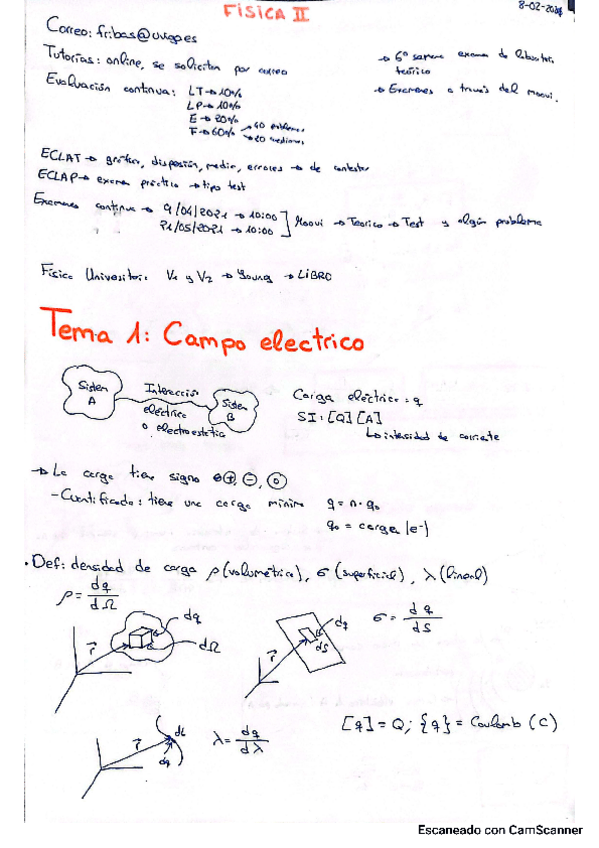 FÍSICA II
8-02-2021
Correo: fribas@uvigo.es
Tutorías: online, se solicitan por correo
→ 6º semana examen de laboratorio teórico
Evaluación continua: LT → 10%
→ Exámenes a través del moovi.
LP → 10%
E → 20%
F → 60% → 40 problemas
→ 20 mediones
ECLAT → gráficas, dispersión, media, errores → de contestar
ECLAP → examen práctico → tipo test
Exámenes continua → 9/04/2021 → 10:00
21/05/2021 → 10:00
Moovi → Teórico → Test y algún problema
Física Universitaria V1 y V2 → Young → LIBRO
Tema 1: Campo electrico
Sistema A
Interacción eléctrica o electroestática
Sistema B
Carga eléctrica: q
SI: [Q] [A]
↳ intensidad de corriente
→ La carga tiene signo ⊕, ⊖, 0
- Cuantificada: tiene una carga mínima q = n · q₀
q₀ = carga |e⁻|
· Def: densidad de carga ρ (volumétrica), σ (superficial), λ (lineal)
ρ = dq/dΩ
dq
dΩ
r
σ = dq/dS
dq
dS
r
[q] = Q; {q} = Coulomb (C)
λ = dq/dλ
dl
dq
r
Escaneado con CamScanner